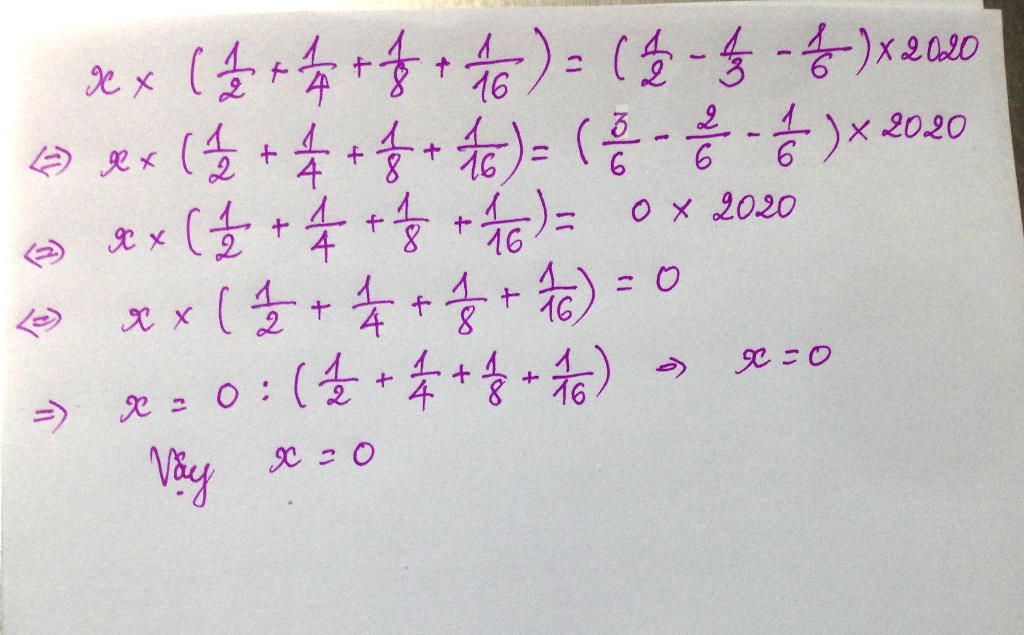 x × (1/2 + 1/4 + 1/8 + 1/16) = (1/2 - 1/3 - 1/6) × 2020
⇔ x × (1/2 + 1/4 + 1/8 + 1/16) = (3/6 - 2/6 - 1/6) × 2020
⇔ x × (1/2 + 1/4 + 1/8 + 1/16) = 0 × 2020
⇔ x × (1/2 + 1/4 + 1/8 + 1/16) = 0
⇒ x = 0 : (1/2 + 1/4 + 1/8 + 1/16) ⇒ x = 0
Vậy x = 0